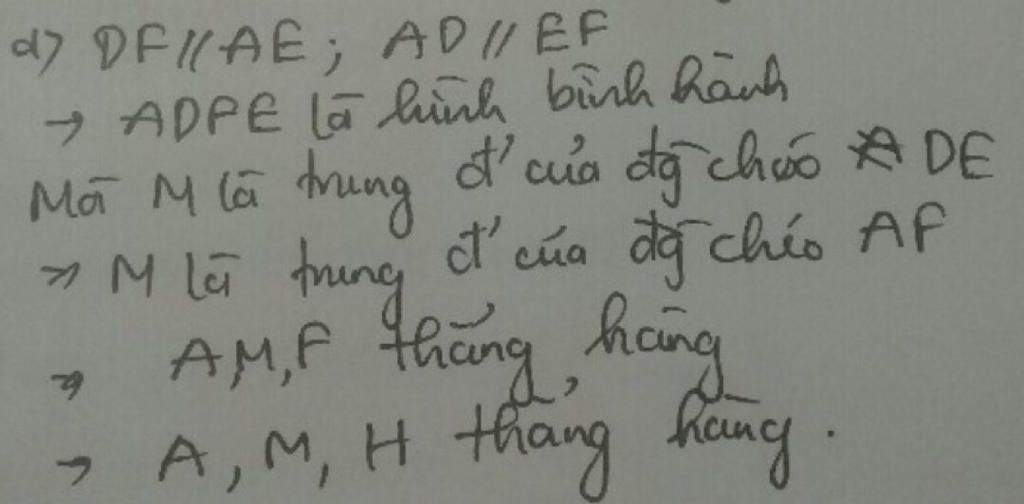 d) DF // AE ; AD // EF
→ ADFE là hình bình hành
Mà M là trung đ' của đg chéo DE
→ M là trung đ' của đg chéo AF
→ A, M, F thẳng hàng
→ A, M, H thẳng hàng .